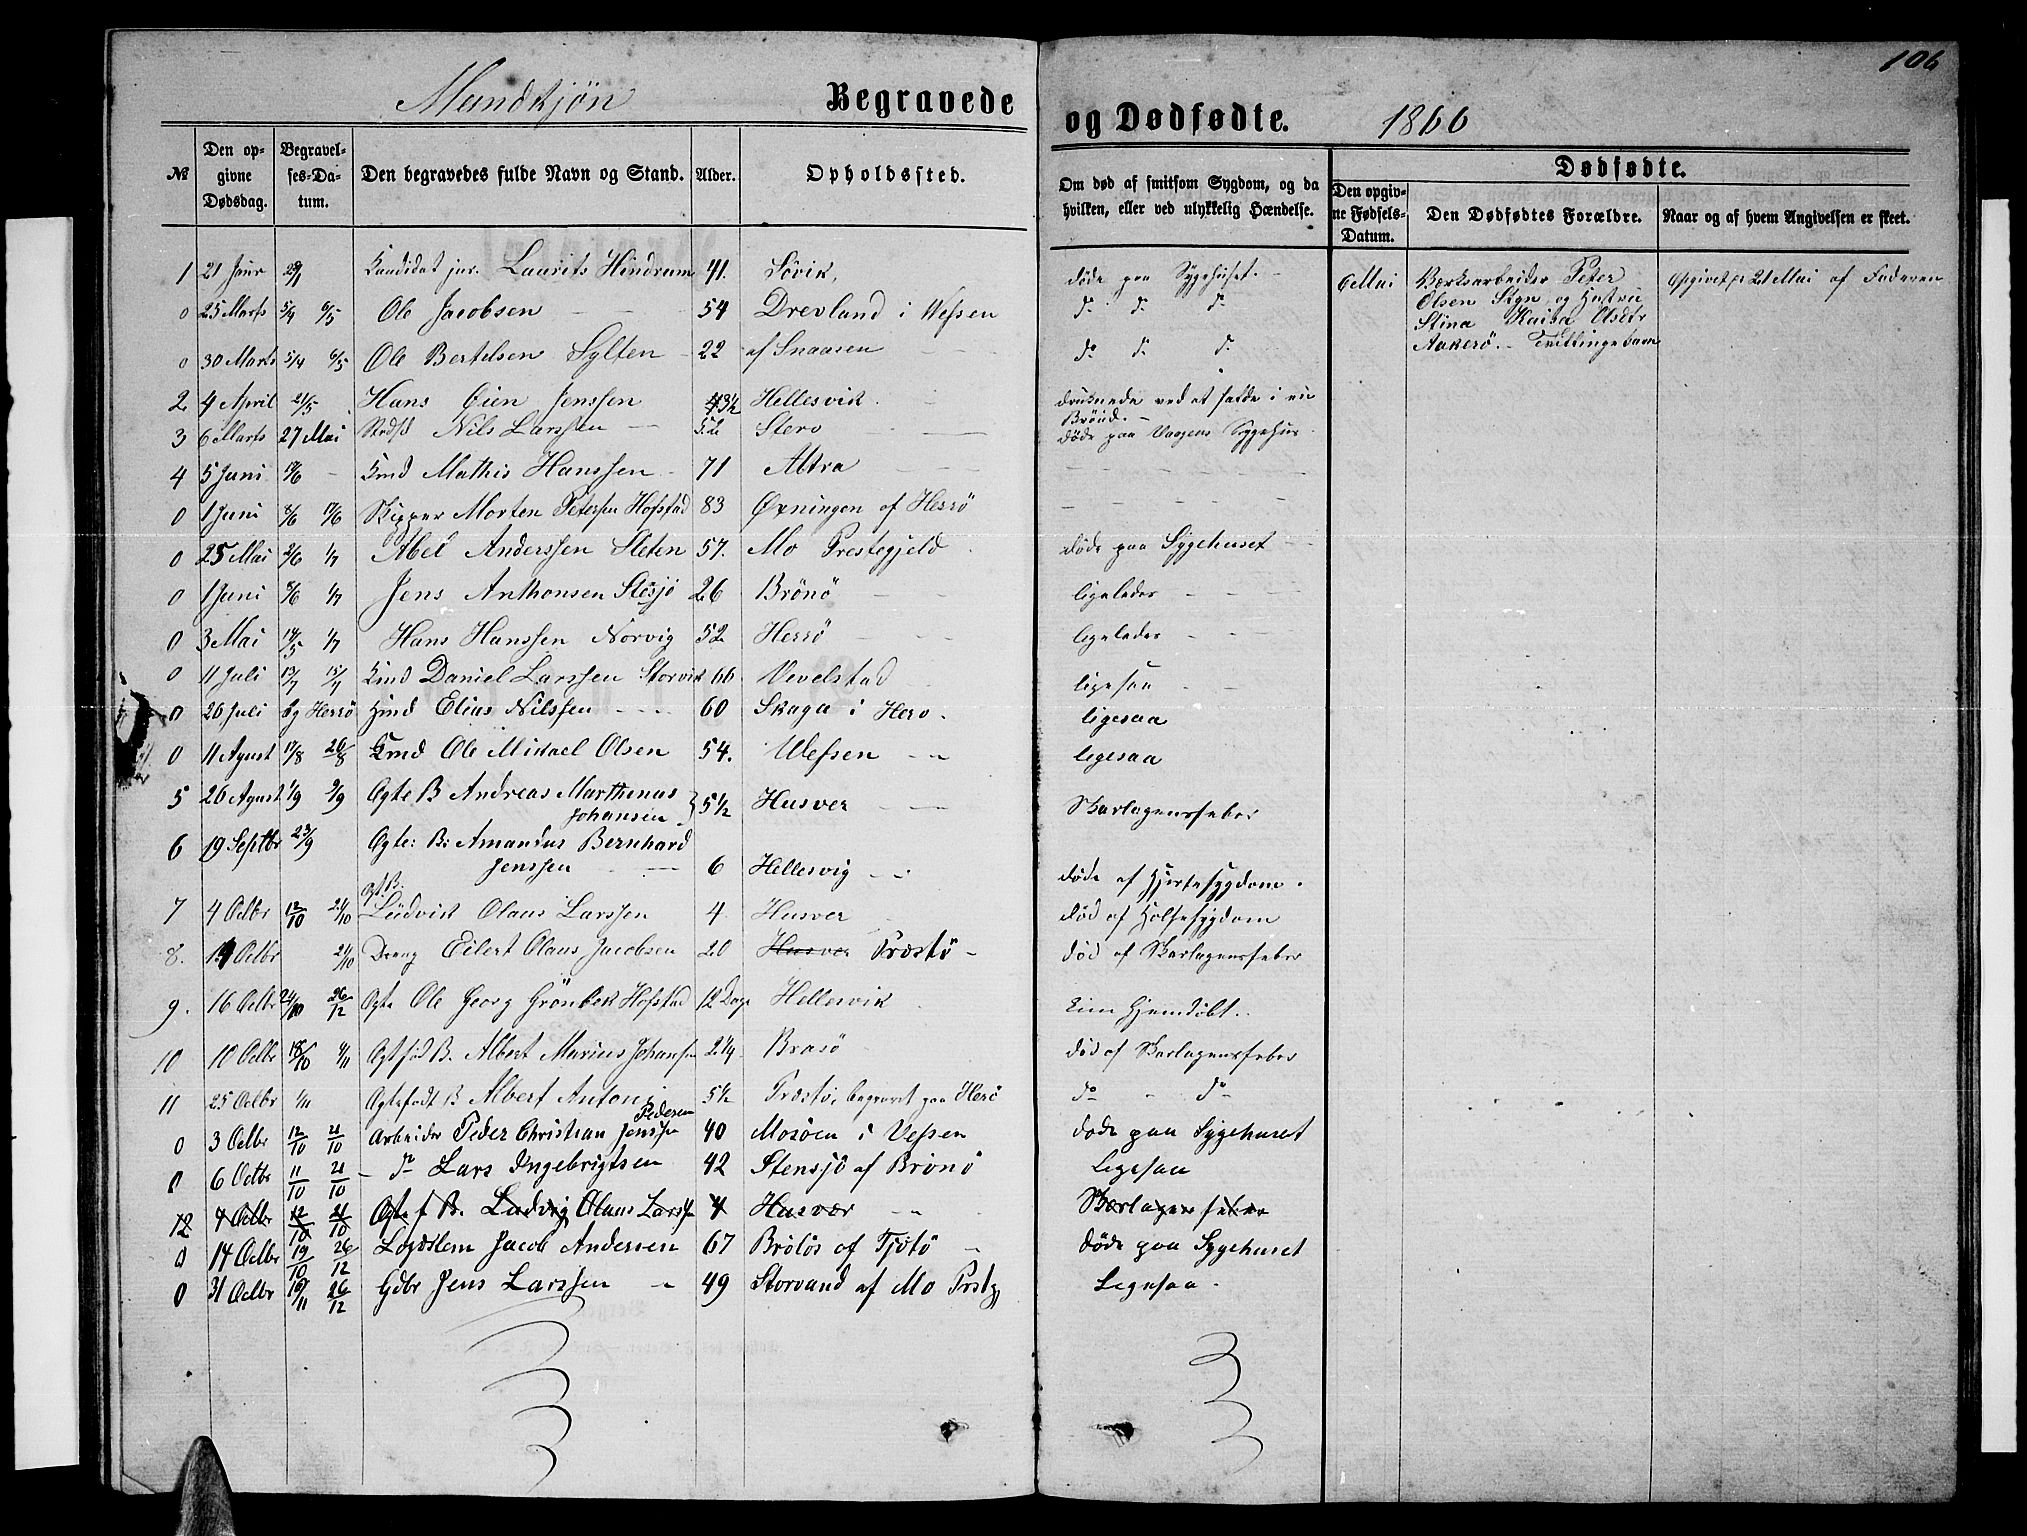 106
Mandkjøn Begravede og Dødfødte. 1866
№ Den opgivne Dødsdag. Begravelses-Datum. Den begravedes fulde Navn og Stand. Alder. Opholdssted. Om død af smitsom Sygdom, og da hvilken, eller ved ulykkelig Hændelse. Dødfødte. Den opgivne Fødsels-Datum. Den Dødfødtes Forældre. Naar og af hvem Angivelsen er skeet.
1 21 Janr Kandidat jur. Laurits Hindrum 41. Søvik, døde paa Sygehuset. 6 Mai Værksarbeider Peter Opgivet 21 Mai af Faderen
Olsen og Hustru
Stina Kaisa Olsdtr
Aakerö. - Tvillingebarn
0 25 Marts 5/4 6/5 Ole Jacobsen 54 Drevland i Vefsen do do do
0 30 Marts 5/4 6/5 Ole Bertelsen Sylten 22 af Snaasen do do do
2 4 April 21/5 Hans Eien Jenssen 3½ Hellesvik. druknede ved at falde i en Brønd.
3 6 Marts 27 Mai Nils Larssen 52 Stero døde paa Vaagens Sygehus
4 5 Juni Kmd Mathis Hanssen 71 Altra
0 1 Juni 8/6 17/6 Skipper Morten Petersen Hofstad 83 Øxningen af Herrö
0 25 Mai 2/6 1/7 Abel Anderssen Sleten 57. Mo Prestegjeld døde paa Sygehuset
0 1 Juni 8/6 1/7 Jens Anthonsen Stesjö 26 Brönö ligeledes
0 3 Mai 14/5 1/7 Hans Hanssen Norvig 52 Herrö ligeledes
0 11 Juli 13/7 15/7 Kmd Daniel Larssen Storvik 66 Vevelstad ligesaa
0 20 Juli bg Herrö Hmd Elias Nilssen 60 Skaga i Herö. ligesaa
0 11 Agust 17/8 26/8 Kmd Ole Mikael Olsen 54. Vefsen ligesaa
5 26 Agust 1/9 9/9 Ægte B Andreas Marthinus Johansen 5½ Husver Skarlagensfeber
6 19 Septbr 23/9 Ægte: B: Amandus Bernhard Jenssen 6 Hellesvig døde af Hjertesygdom.
7 4 Octbr 12/10 21/10 Ægt. B. Ludvik Olaus Larssen 4 Husver død af Halsesygdom
8. 14 Octbr 21/10 Dreng Eilert Olaus Jacobsen 20 Husver Præstö død af Skarlagensfeber
9. 16 Octbr 24/10 26/12 Ægte Ole Georg Grönbek Hofstad 12 Dage Hellesvik Hjemdöbt.
10 10 Octbr 18/10 4/11 Ægtefød B. Albert Marius Johansen 2¼ Brasö død af Skarlagensfeber
11 25 Octbr 1/11 Ægtefødt B Albert Antoni Pedersen 5½ Præstö, begravet paa Herö do do
0 3 Octbr 12/10 21/10 Arbeider Peder Christian Jenssen 40 Mosöen i Vefsen døde paa Sygehuset
0 6 Octbr 11/10 21/10 do Lars Ingebrigtsen 42 Stensjö af Brönö Ligesaa
12 4 Octbr 12/10 21/10 Ægte f B. Ludvig Olaus Larssen 4 Husvær Skarlagensfeber
0 14 Octbr 19/10 26/12 Lægdslem Jacob Andersen 67 Brölös af Tjötö døde paa Sygehuset
0 31 Octbr 10/11 26/12 Gdbr Jens Larssen 49 Storvand af Mo Prstg Ligesaa.